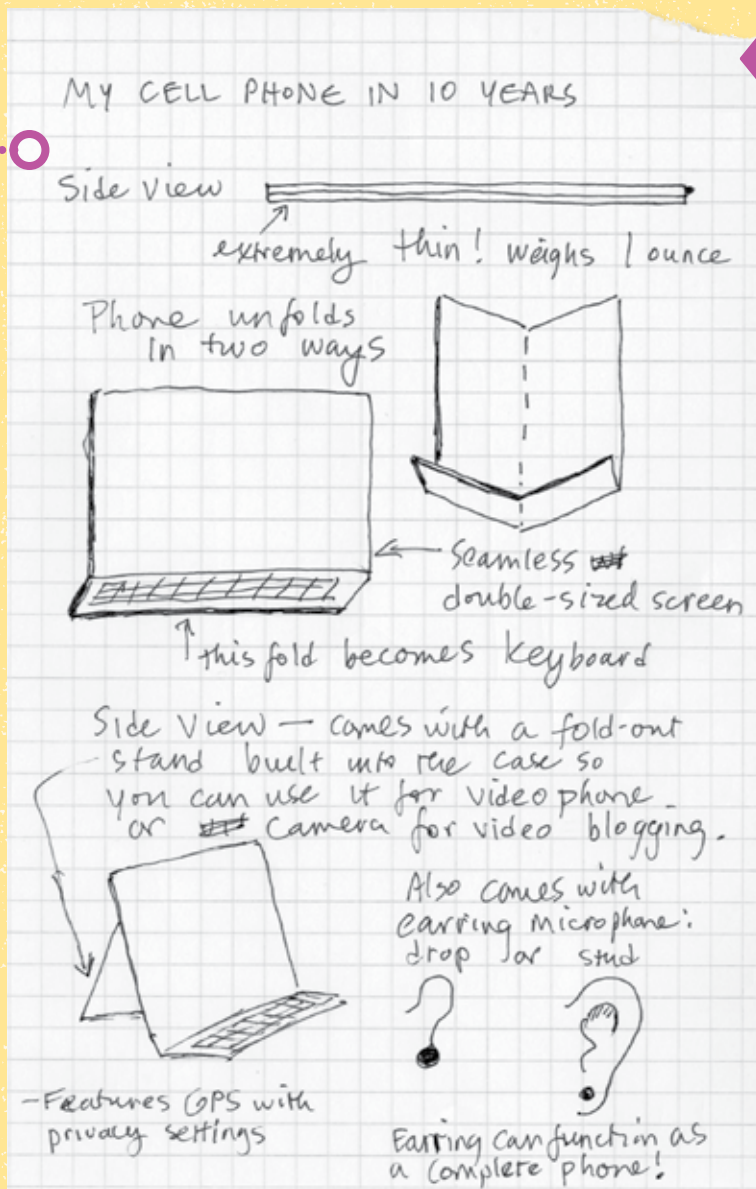 MY CELL PHONE IN 10 YEARS
Side view
extremely thin! weighs 1 ounce
Phone unfolds
in two ways
seamless
double-sized screen
this fold becomes keyboard
Side view — comes with a fold-out
stand built into the case so
you can use it for video phone
or camera for video blogging.
Also comes with
earring microphone:
drop or stud
-Features GPS with
privacy settings
Earring can function as
a complete phone!